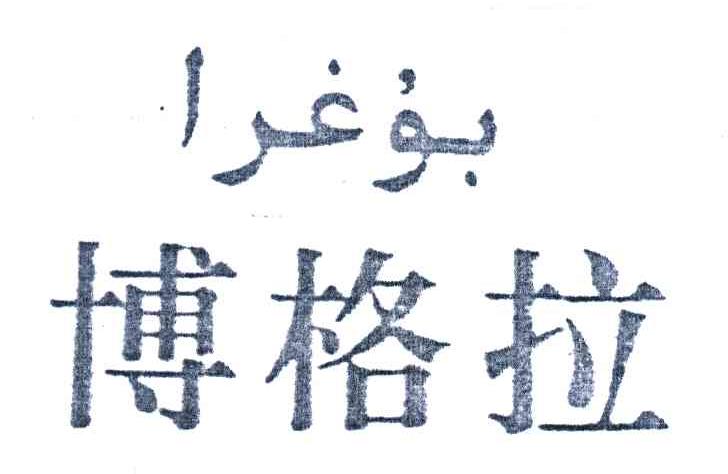 بۇغرا
博格拉